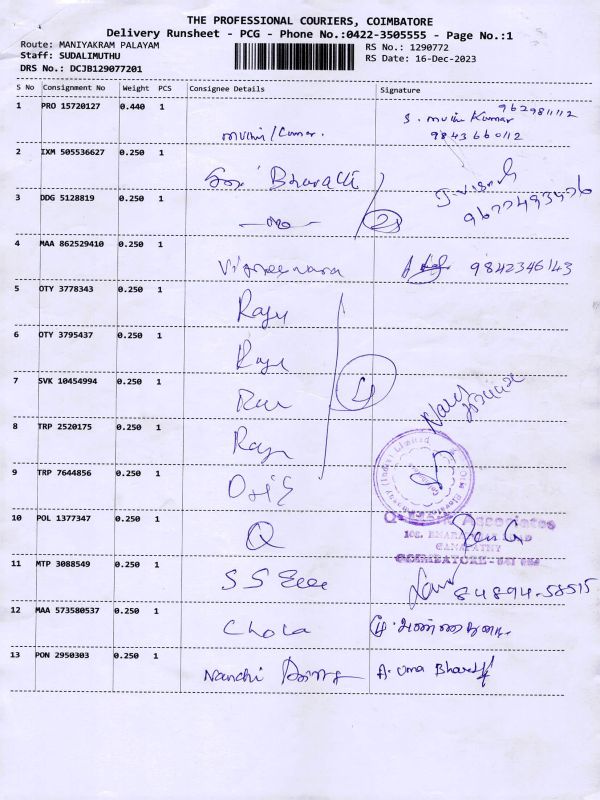 THE PROFESSIONAL COURIERS, COIMBATORE
Delivery Runsheet - PCG - Phone No.:0422-3505555 - Page No.:1
Route: MANIYAKRAM PALAYAM
Staff: SUDALIMUTHU
DRS No.: DCJB129077201
RS No.: 1290772
RS Date: 16-Dec-2023
S No Consignment No Weight PCS Consignee Details Signature
1 PRO 15720127 0.440 1 S. Muthu Kumar 9629811112
9843660112
2 IXM 505536627 0.250 1 Sri Bharathi
3 DDG 5128819 0.250 1 2 9677493426
4 MAA 862529410 0.250 1 Vigneswara 9842346143
5 OTY 3778343 0.250 1 Raju
6 OTY 3795437 0.250 1 Raju
7 SVK 10454994 0.250 1 4
8 TRP 2520175 0.250 1 Raju
9 TRP 7644856 0.250 1
10 POL 1377347 0.250 1 Q
Associates
GANAPATHY
COIMBATORE
11 MTP 3088549 0.250 1 S S 84894-58515
12 MAA 573580537 0.250 1 Chola
13 PON 2950303 0.250 1 Nandhi A. Uma Bharathi